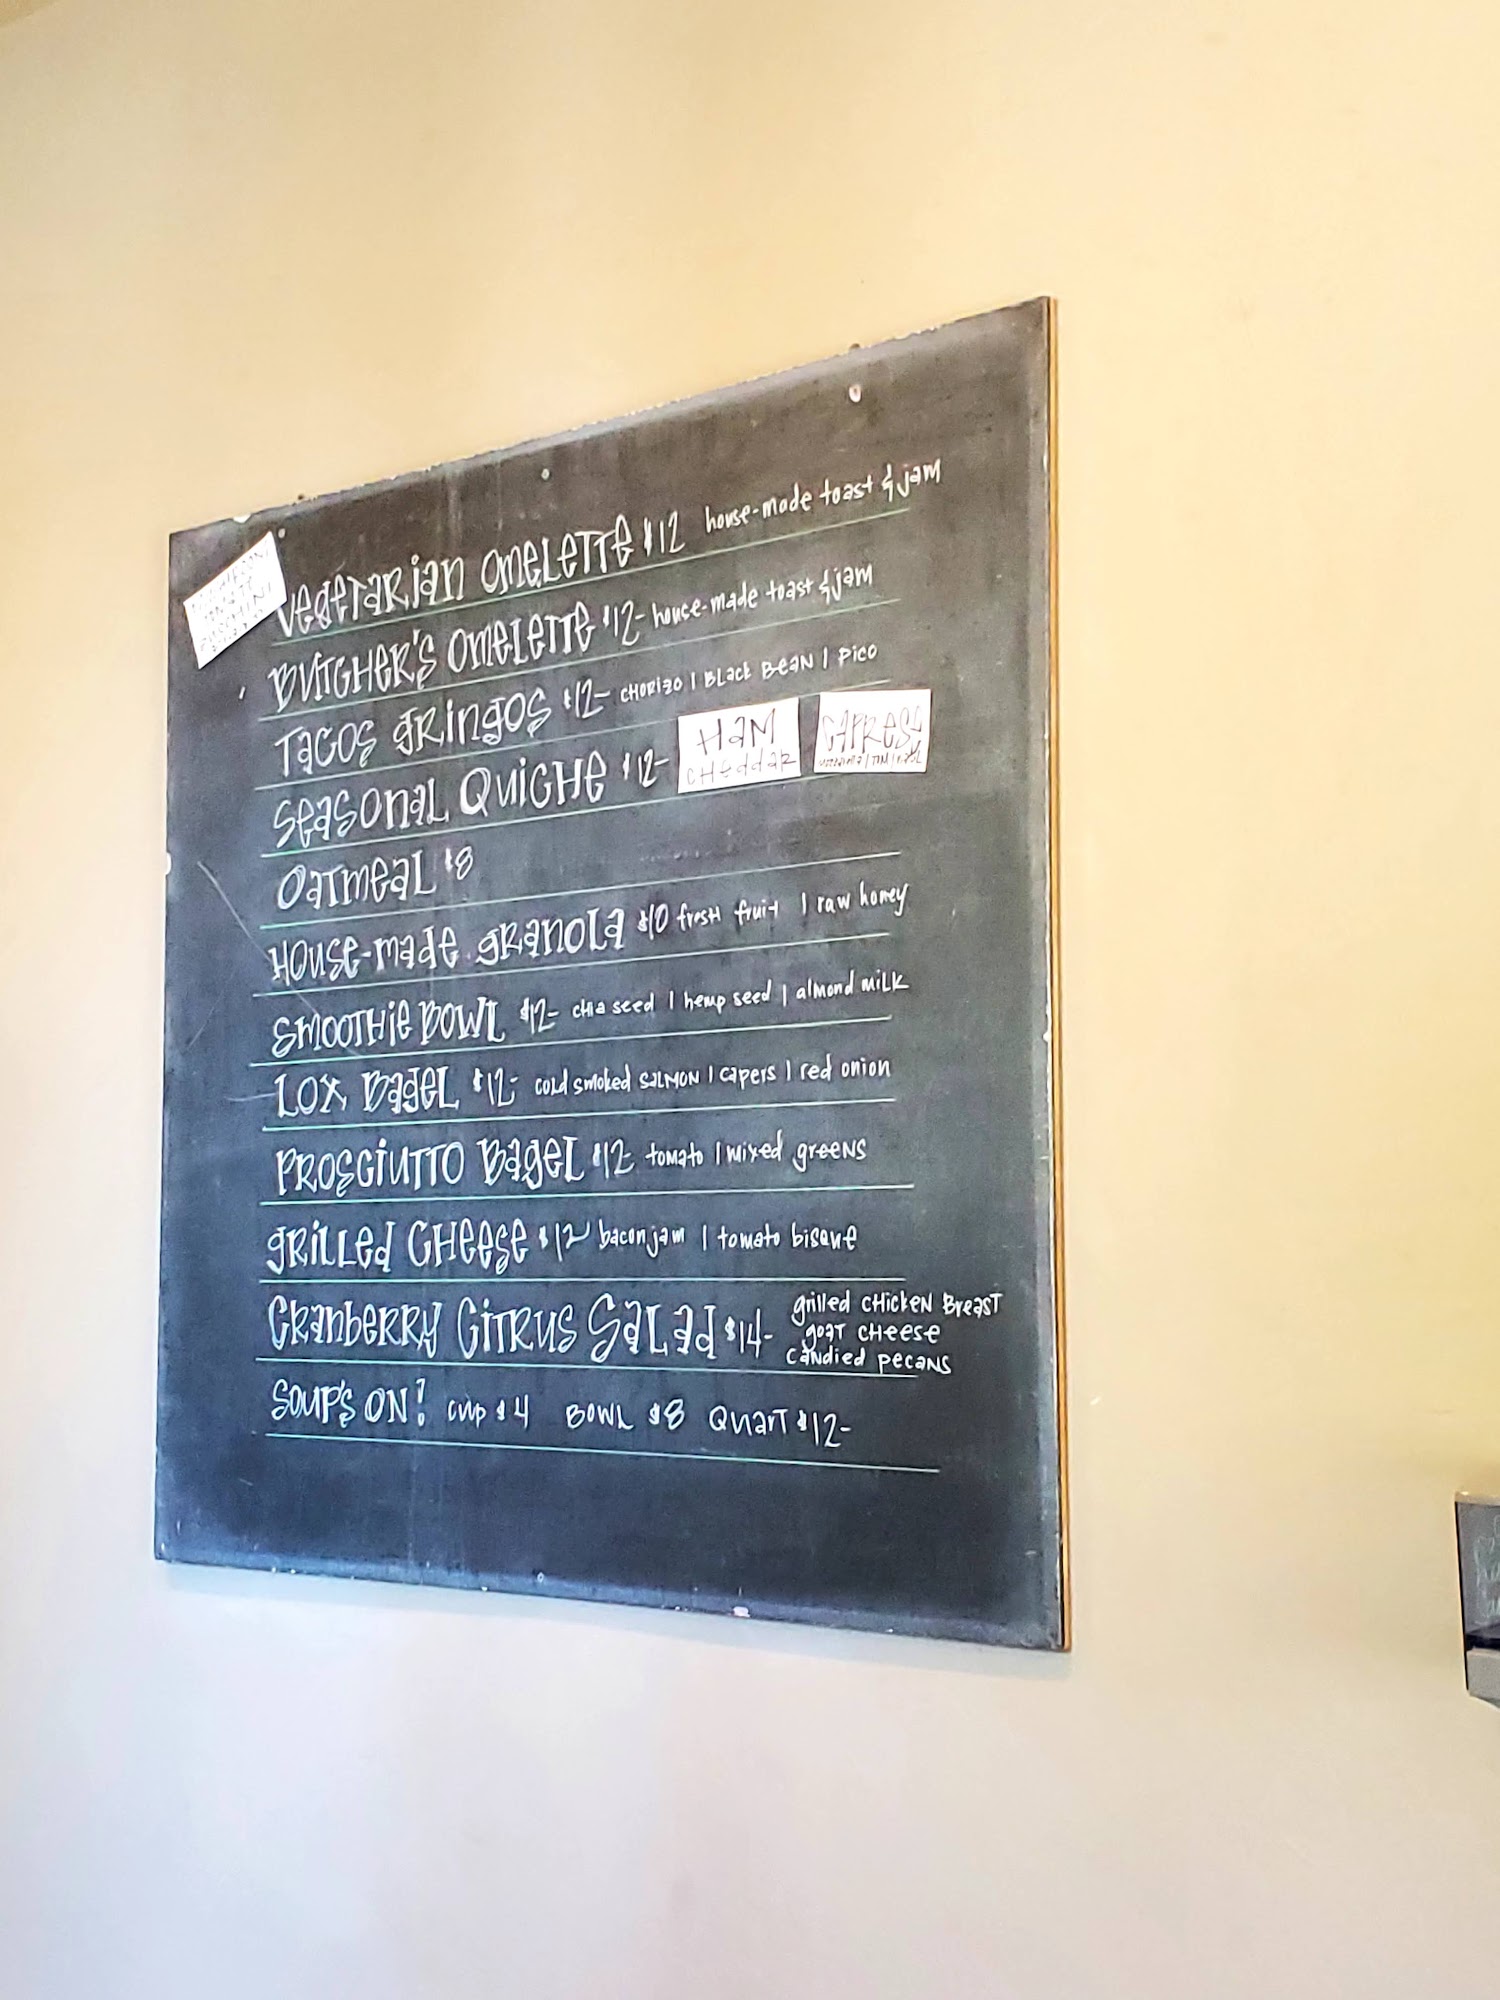 Vegetarian Omelette $12 house-made toast & jam
Butcher's Omelette $12- house-made toast & jam
Tacos Gringos $12- chorizo | black bean | pico
Seasonal Quiche $12- Ham Cheddar Caprese
Oatmeal $8
House-made granola $10 fresh fruit | raw honey
Smoothie Bowl $12- chia seed | hemp seed | almond milk
Lox Bagel $12- cold smoked salmon | capers | red onion
Prosciutto Bagel $12- tomato | mixed greens
Grilled Cheese $12 bacon jam | tomato bisque
Cranberry Citrus Salad $14- grilled chicken breast
goat cheese
candied pecans
Soup's On! cup $4 Bowl $8 Quart $12-